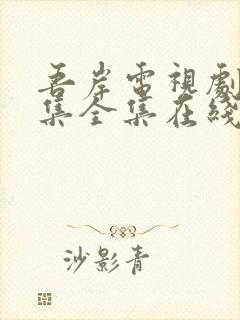 吾岸電視劇
集全集在綫
沙影青